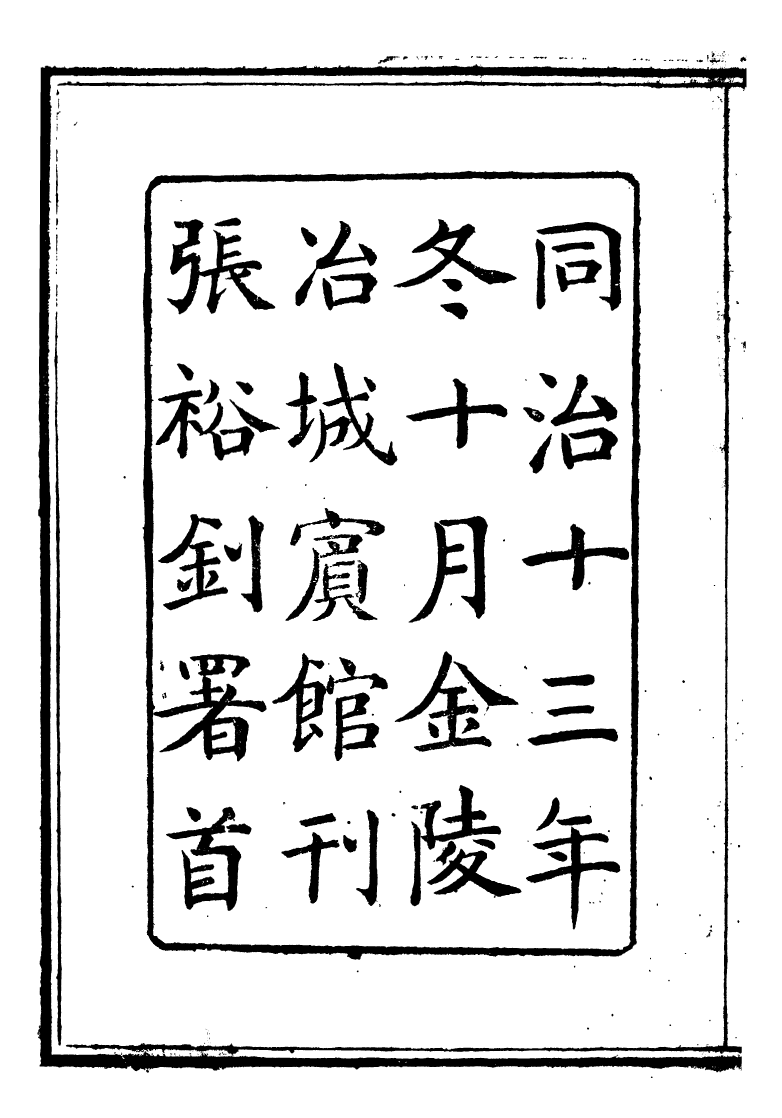 同治十三年
冬十月金陵
冶城賓館刊
張裕釗署首